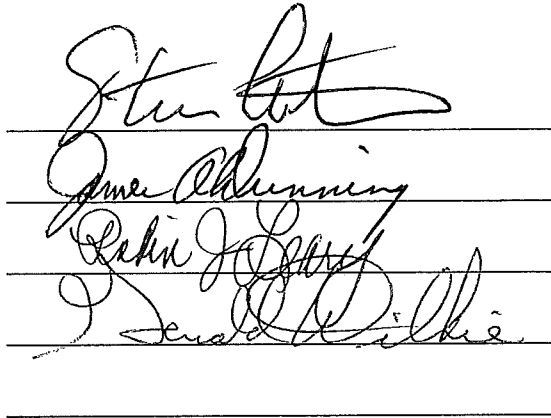 Steven
James A. Dunning
Robin J. Leary
Gerald Wilkie